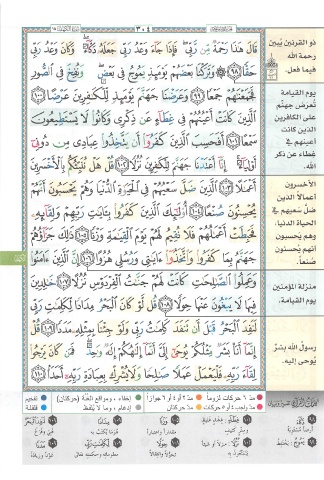 ٣٠٤
قَالَ هَٰذَا رَحْمَةٌ مِّن رَّبِّي فَإِذَا جَآءَ وَعْدُ رَبِّي جَعَلَهُۥ دَكَّآءَ وَكَانَ وَعْدُ رَبِّي
حَقًّا ٩٨ وَتَرَكْنَا بَعْضَهُمْ يَوْمَئِذٍ يَمُوجُ فِي بَعْضٍ وَنُفِخَ فِي ٱلصُّورِ
فَجَمَعْنَٰهُمْ جَمْعًا ٩٩ وَعَرَضْنَا جَهَنَّمَ يَوْمَئِذٍ لِّلْكَٰفِرِينَ عَرْضًا ١٠٠
ٱلَّذِينَ كَانَتْ أَعْيُنُهُمْ فِي غِطَآءٍ عَن ذِكْرِي وَكَانُوا۟ لَا يَسْتَطِيعُونَ
سَمْعًا ١٠١ أَفَحَسِبَ ٱلَّذِينَ كَفَرُوٓا۟ أَن يَتَّخِذُوا۟ عِبَادِي مِن دُونِيٓ
أَوْلِيَآءَ إِنَّآ أَعْتَدْنَا جَهَنَّمَ لِلْكَٰفِرِينَ نُزُلًا ١٠٢ قُلْ هَلْ نُنَبِّئُكُم بِٱلْأَخْسَرِينَ
أَعْمَٰلًا ١٠٣ ٱلَّذِينَ ضَلَّ سَعْيُهُمْ فِي ٱلْحَيَوٰةِ ٱلدُّنْيَا وَهُمْ يَحْسَبُونَ أَنَّهُمْ
يُحْسِنُونَ صُنْعًا ١٠٤ أُو۟لَٰٓئِكَ ٱلَّذِينَ كَفَرُوا۟ بِـَٔايَٰتِ رَبِّهِمْ وَلِقَآئِهِۦ
فَحَبِطَتْ أَعْمَٰلُهُمْ فَلَا نُقِيمُ لَهُمْ يَوْمَ ٱلْقِيَٰمَةِ وَزْنًا ١٠٥ ذَٰلِكَ جَزَآؤُهُمْ
جَهَنَّمُ بِمَا كَفَرُوا۟ وَٱتَّخَذُوٓا۟ ءَايَٰتِي وَرُسُلِي هُزُوًا ١٠٦ إِنَّ ٱلَّذِينَ ءَامَنُوا۟
وَعَمِلُوا۟ ٱلصَّٰلِحَٰتِ كَانَتْ لَهُمْ جَنَّٰتُ ٱلْفِرْدَوْسِ نُزُلًا ١٠٧ خَٰلِدِينَ
فِيهَا لَا يَبْغُونَ عَنْهَا حِوَلًا ١٠٨ قُل لَّوْ كَانَ ٱلْبَحْرُ مِدَادًا لِّكَلِمَٰتِ رَبِّي
لَنَفِدَ ٱلْبَحْرُ قَبْلَ أَن تَنفَدَ كَلِمَٰتُ رَبِّي وَلَوْ جِئْنَا بِمِثْلِهِۦ مَدَدًا ١٠٩ قُلْ
إِنَّمَآ أَنَا۠ بَشَرٌ مِّثْلُكُمْ يُوحَىٰٓ إِلَيَّ أَنَّمَآ إِلَٰهُكُمْ إِلَٰهٌ وَٰحِدٌ فَمَن كَانَ يَرْجُوا۟
لِقَآءَ رَبِّهِۦ فَلْيَعْمَلْ عَمَلًا صَٰلِحًا وَلَا يُشْرِكْ بِعِبَادَةِ رَبِّهِۦٓ أَحَدًۢا ١١٠
ذو القرنين يُبين
رحمة الله
فيما فعل.
يوم القيامة
تُعرض جهنّم
على الكافرين
الذين كانت
أعينهم في
غطاء عن ذكر
الله.
الأخسرون
أعمالًا الذين
ضلّ سَعيهم في
الحياة الدنيا،
وهم يحسبون
أنهم يحسنون
صنعاً.
منزلة المؤمنين
يوم القيامة.
رسول الله بشرٌ
يُوحى إليه.
مدّ ٦ حركات لزوماً
مدّ ٢ أو ٤ أو ٦ جوازاً
إخفاء، ومواقع الغُنّة (حركتان)
تفخيم
مدّ حركتان
إدغام، وما لا يُلفظ
قلقلة